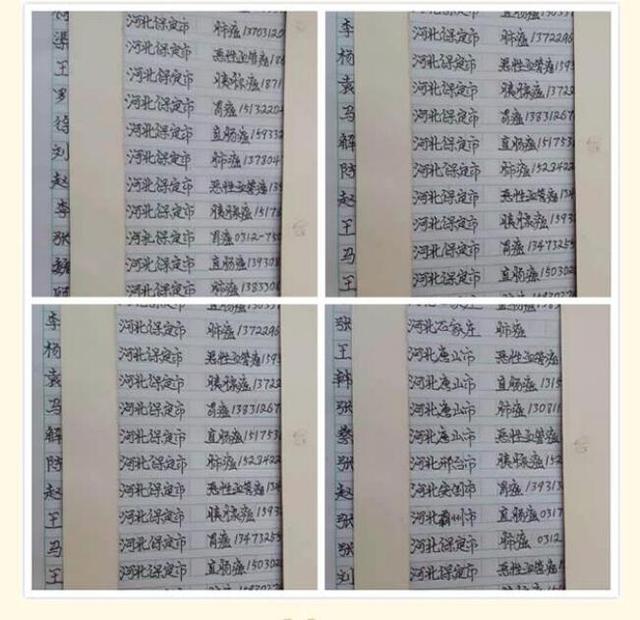 河北保定市 肺癌13703120
渠 河北保定市 恶性血管瘤186
王 河北保定市 胰腺癌1871
罗 河北保定市 胃癌15132204
徐 河北保定市 直肠癌15933
刘 河北保定市 肺癌137804
赵 河北保定市 恶性血管瘤139
李 河北保定市 胰腺癌1517
张 河北保定市 胃癌0312-75
河北保定市 直肠癌139308
河北保定市 肺癌1383308
李 河北保定市 肺癌1372296
杨 河北保定市 恶性血管瘤1393
袁 河北保定市 胰腺癌13722
马 河北保定市 胃癌13831267
解 河北保定市 直肠癌151753
陈 河北保定市 肺癌1523422
赵 河北保定市 恶性血管瘤134
王 河北保定市 胰腺癌1593
马 河北保定市 胃癌1347325
王 河北保定市 直肠癌150302
李 河北保定市 肺癌1372296
杨 河北保定市 恶性血管瘤1393
袁 河北保定市 胰腺癌13722
马 河北保定市 胃癌13831267
解 河北保定市 直肠癌151753
陈 河北保定市 肺癌1523422
赵 河北保定市 恶性血管瘤134
王 河北保定市 胰腺癌1593
马 河北保定市 胃癌1347325
王 河北保定市 直肠癌150302
张 河北石家庄 肺癌
王 河北唐山市 恶性血管瘤
韩 河北唐山市 直肠癌1315
张 河北唐山市 肺癌130811
河北唐山市 恶性血管瘤
张 河北邢台市 胰腺癌152
赵 河北安国市 胃癌13931
张 河北霸州市 直肠癌0317
张 河北保定市 肺癌0312
刘 河北保定市 恶性血管瘤